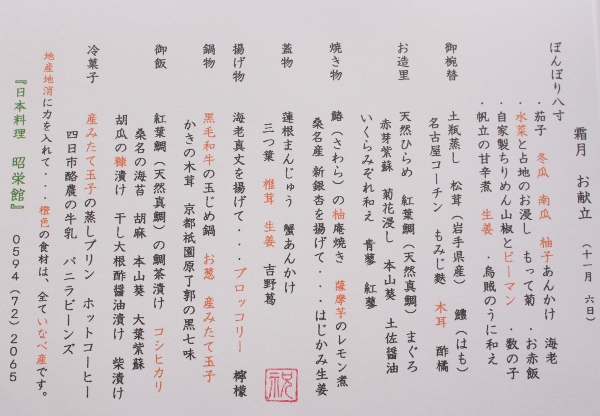 霜月 お献立 (十一月 六日)
ぼんぼり八寸
・茄子 冬瓜 南瓜 柚子あんかけ 海老
・水菜と占地のお浸し もって菊 ・お赤飯
・自家製ちりめん山椒とピーマン ・数の子
・帆立の甘辛煮 生姜 ・烏賊のうに和え
御椀替 土瓶蒸し 松茸(岩手県産) 鱧(はも)
名古屋コーチン もみじ麩 木耳 酢橘
お造里 天然ひらめ 紅葉鯛(天然真鯛) まぐろ
赤芽紫蘇 菊花浸し 本山葵 土佐醤油
いくらみぞれ和え 青蓼 紅蓼
焼き物 鰆(さわら)の柚庵焼き 薩摩芋のレモン煮
桑名産 新銀杏を揚げて・・・はじかみ生姜
蓋物 蓮根まんじゅう 蟹あんかけ
三つ葉 椎茸 生姜 吉野葛
揚げ物 海老真丈を揚げて・・・ブロッコリー 檸檬
鍋物 黒毛和牛の玉じめ鍋 お葱 産みたて玉子
かきの木茸 京都祇園原了郭の黒七味
御飯 紅葉鯛(天然真鯛)の鯛茶漬け コシヒカリ
桑名の海苔 胡麻 本山葵 大葉紫蘇
胡瓜の糠漬け 干し大根酢醤油漬け 柴漬け
冷菓子 産みたて玉子の蒸しプリン ホットコーヒー
四日市酪農の牛乳 バニラビーンズ
地産地消に力を入れて・・・橙色の食材は、全ていなべ産です。
『日本料理 昭栄館』 0594(72)2065
祝